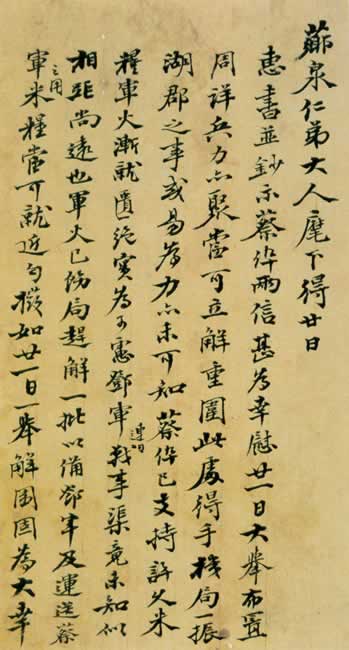 薌泉仁弟大人麾下得廿日
惠書並鈔示蔡倅兩信甚爲幸慰廿一日大舉布置
周詳兵力亦聚當可立解重圍此處得手機局一振
湖郡之事或易爲力亦未可知蔡倅已支持許久米
糧軍火漸就匱絶實爲可慮鄧軍連日戰事渠竟未知似
相距尚遠也軍火已飭局趕解一批以備鄧軍及運送蔡
軍之用米糧當可就近勻撥如廿一日一舉解困固爲大幸